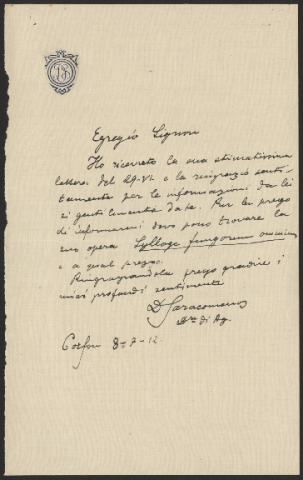 Egregio Signore
Ho ricevuto la sua stimatissima
lettera del 29-VI e la ringrazio senti-
tamente per le informazioni da lei
gentilmente date. Per La prego
di informarmi dove posso trovare la
sua opera Sylloge fungorum omnium
e a qual prezzo.
Ringraziandola prego gradire i
miei profondi sentimenti
D Saracomenos
di Ag.
Corfou 8-7-12